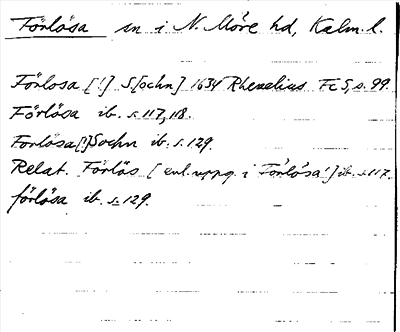 Förlösa sn i N. Möre hd, Kalm. l.
Förlosa [!] S[ochn] 1634 Rhezelius Fc5, s. 99.
Förlösa ib. s. 117, 118.
Forlösa[!]Sochn ib. s. 129.
Relat. Förlös [enl. uppg. i Förlösa!] ib. s. 117.
förlösa ib. s. 129.